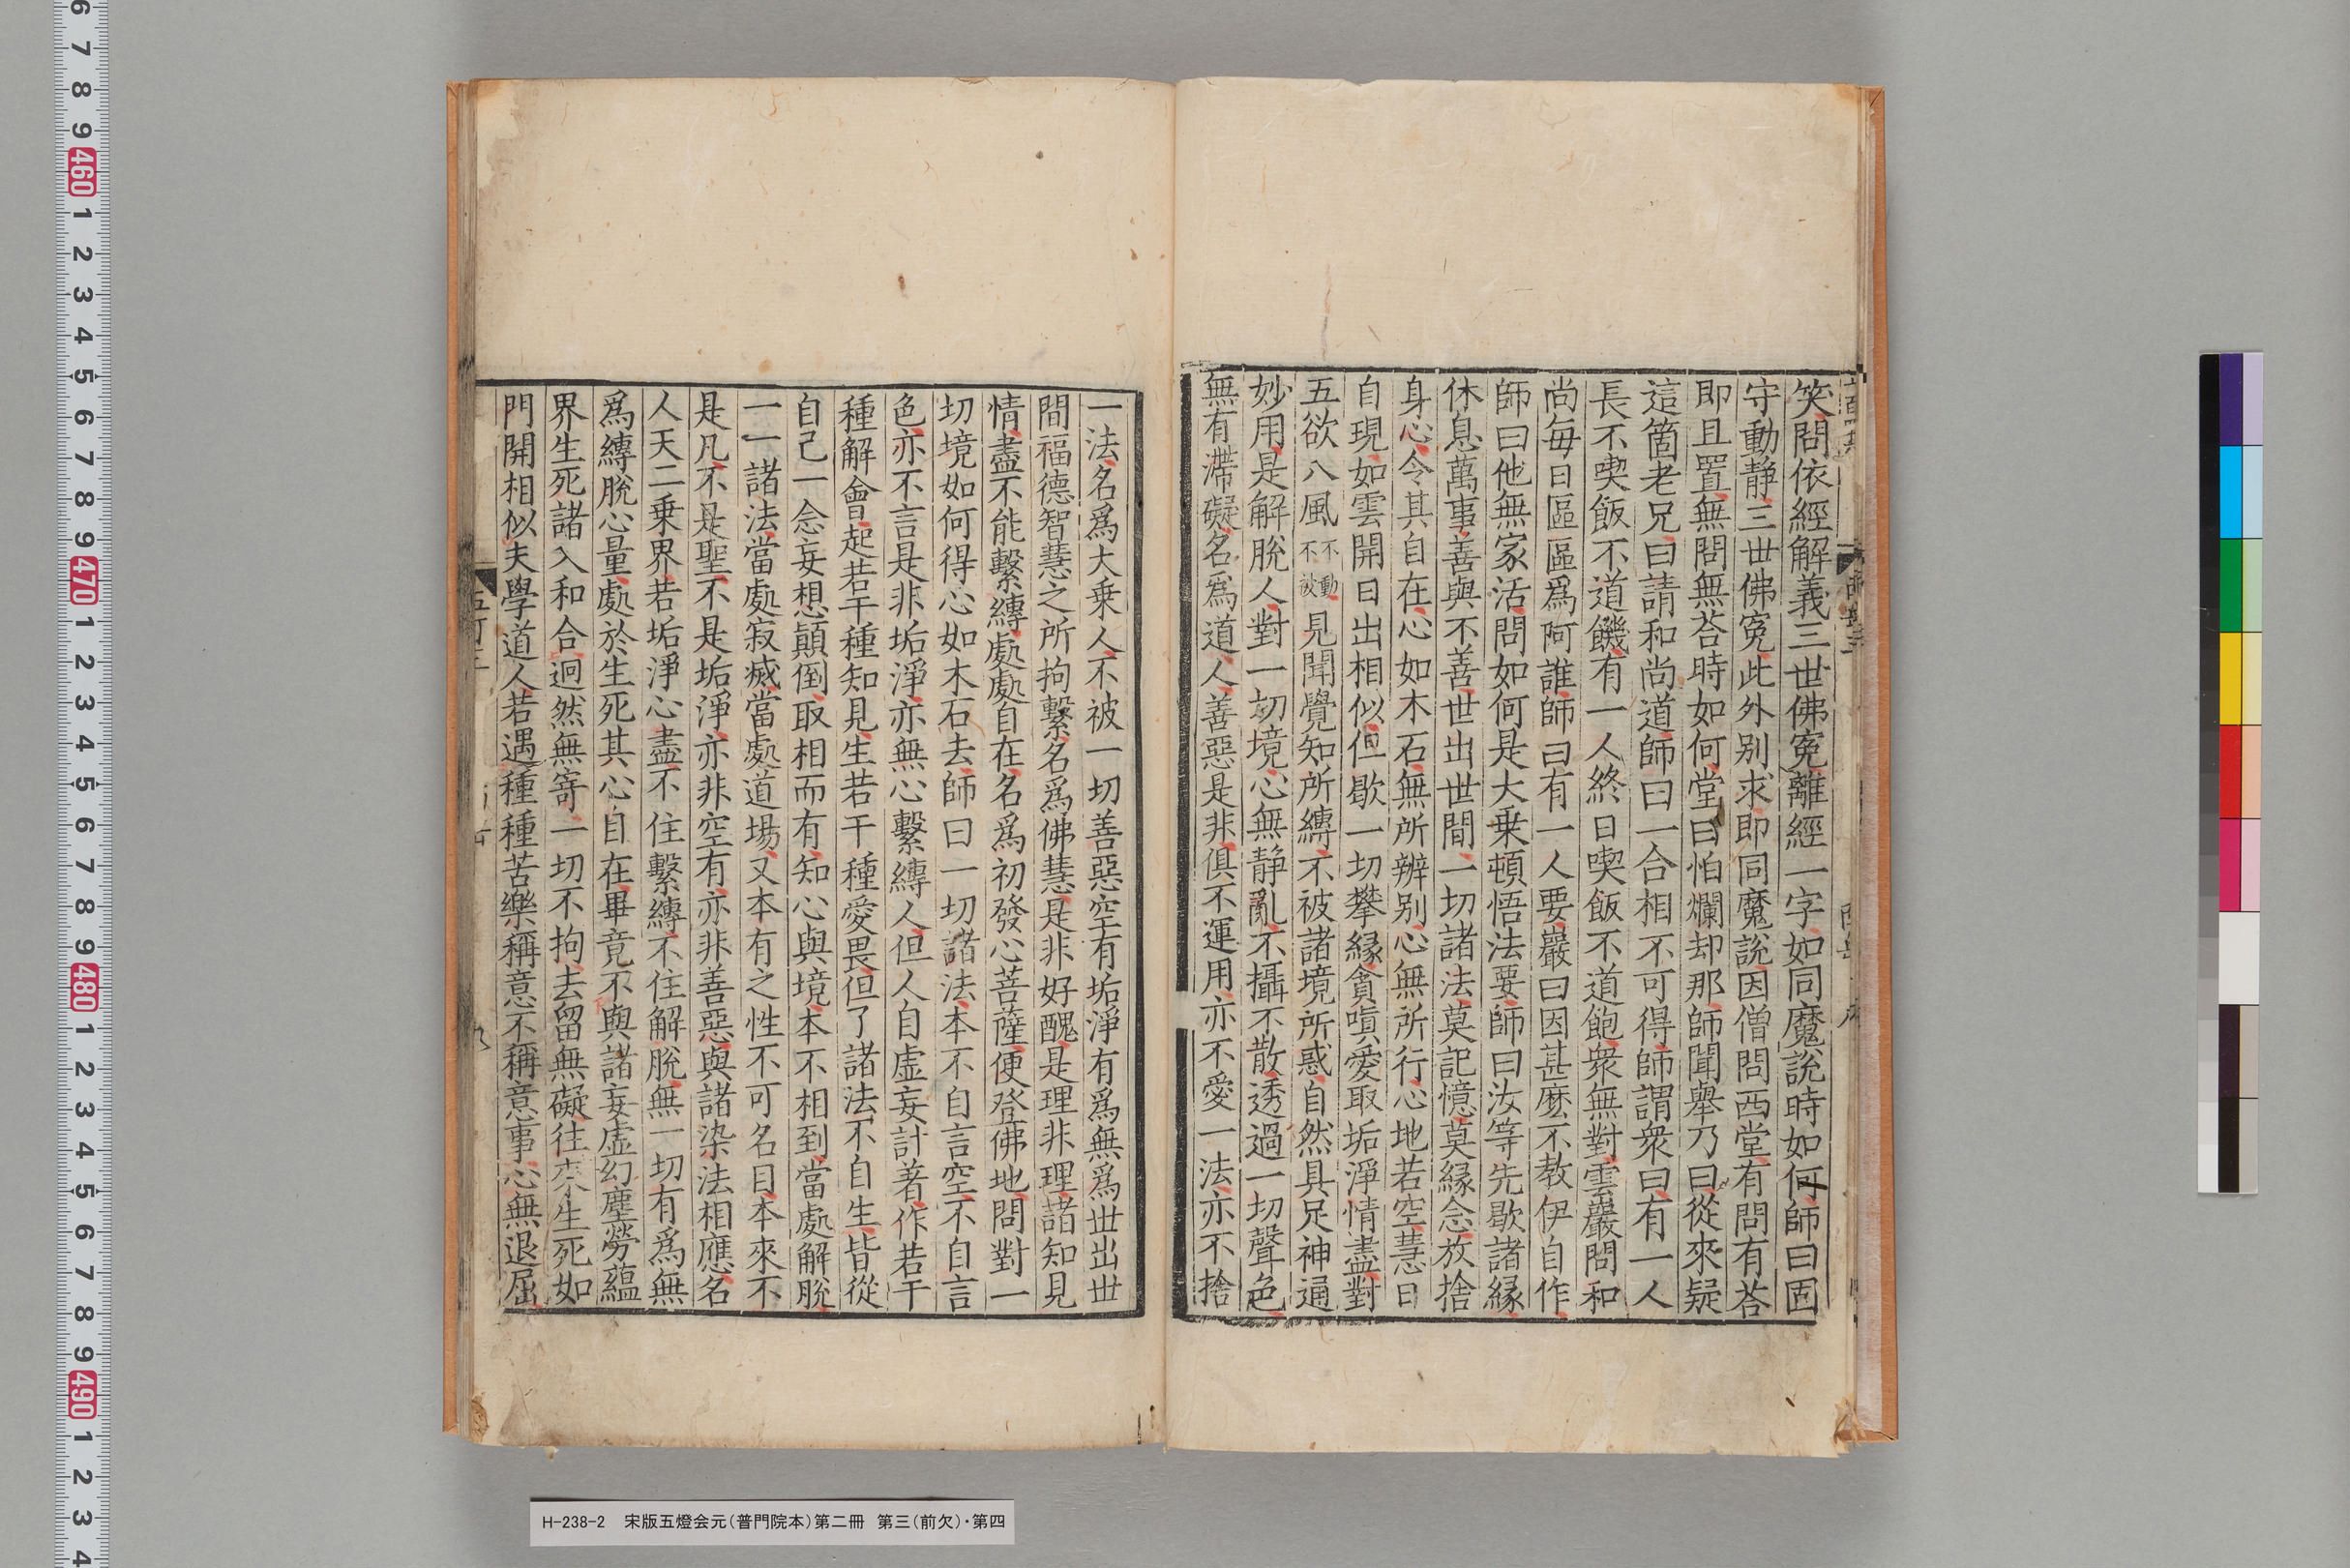 笑問依經解義三世佛寃離經一字如同魔說時如何師曰固
守動静三世佛寃此外别求即同魔說因僧問西堂有問有荅
即且置無問無荅時如何堂曰怕爛却那師聞舉乃曰從來疑
這箇老兄曰請和尚道師曰一合相不可得師謂衆曰有一人
長不喫飯不道饑有一人終日喫飯不道飽衆無對雲巖問和
尚每日區區爲阿誰師曰有一人要巖曰因甚麽不教伊自作
師曰他無家活問如何是大乗頓悟法要師曰汝等先歇諸縁
休息萬事善與不善世出世間一切諸法莫記憶莫縁念放捨
身心令其自在心如木石無所辨别心無所行心地若空慧日
自現如雲開日出相似但歇一切攀縁貪嗔愛取垢淨情盡對
五欲八風不動不被見聞覺知所縛不被諸境所惑自然具足神通
妙用是解脫人對一切境心無静亂不攝不散透過一切聲色
無有滯礙名爲道人善惡是非俱不運用亦不愛一法亦不捨
一法名爲大乗人不被一切善惡空有垢淨有爲無爲世出世
間福德智慧之所拘繫名爲佛慧是非好醜是理非理諸知見
情盡不能繫縛處處自在名爲初發心菩薩便登佛地問對一
切境如何得心如木石去師曰一切諸法本不自言空不自言
色亦不言是非垢淨亦無心繫縛人但人自虛妄計著作若干
種解會起若干種知見生若干種愛畏但了諸法不自生皆從
自己一念妄想顛倒取相而有知心與境本不相到當處解脫
一一諸法當處寂滅當處道場又本有之性不可名目本來不
是凡不是聖不是垢淨亦非空有亦非善惡與諸染法相應名
人天二乗界若垢淨心盡不住繫縛不住解脫無一切有爲無
爲縛脫心量處於生死其心自在畢竟不與諸妄虛幻塵勞蘊
界生死諸入和合迥然無寄一切不拘去留無礙往來生死如
門開相似夫學道人若遇種種苦樂稱意不稱意事心無退屈
H-238-2 宋版五燈会元(普門院本)第二冊 第三(前欠)・第四